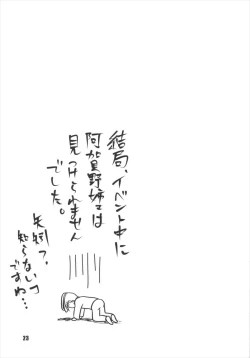 結局、イベント中に
阿加野姉ェは
見つけられません
でした。
矢矧ﾌ、
知らないﾌ
ですわ…
23